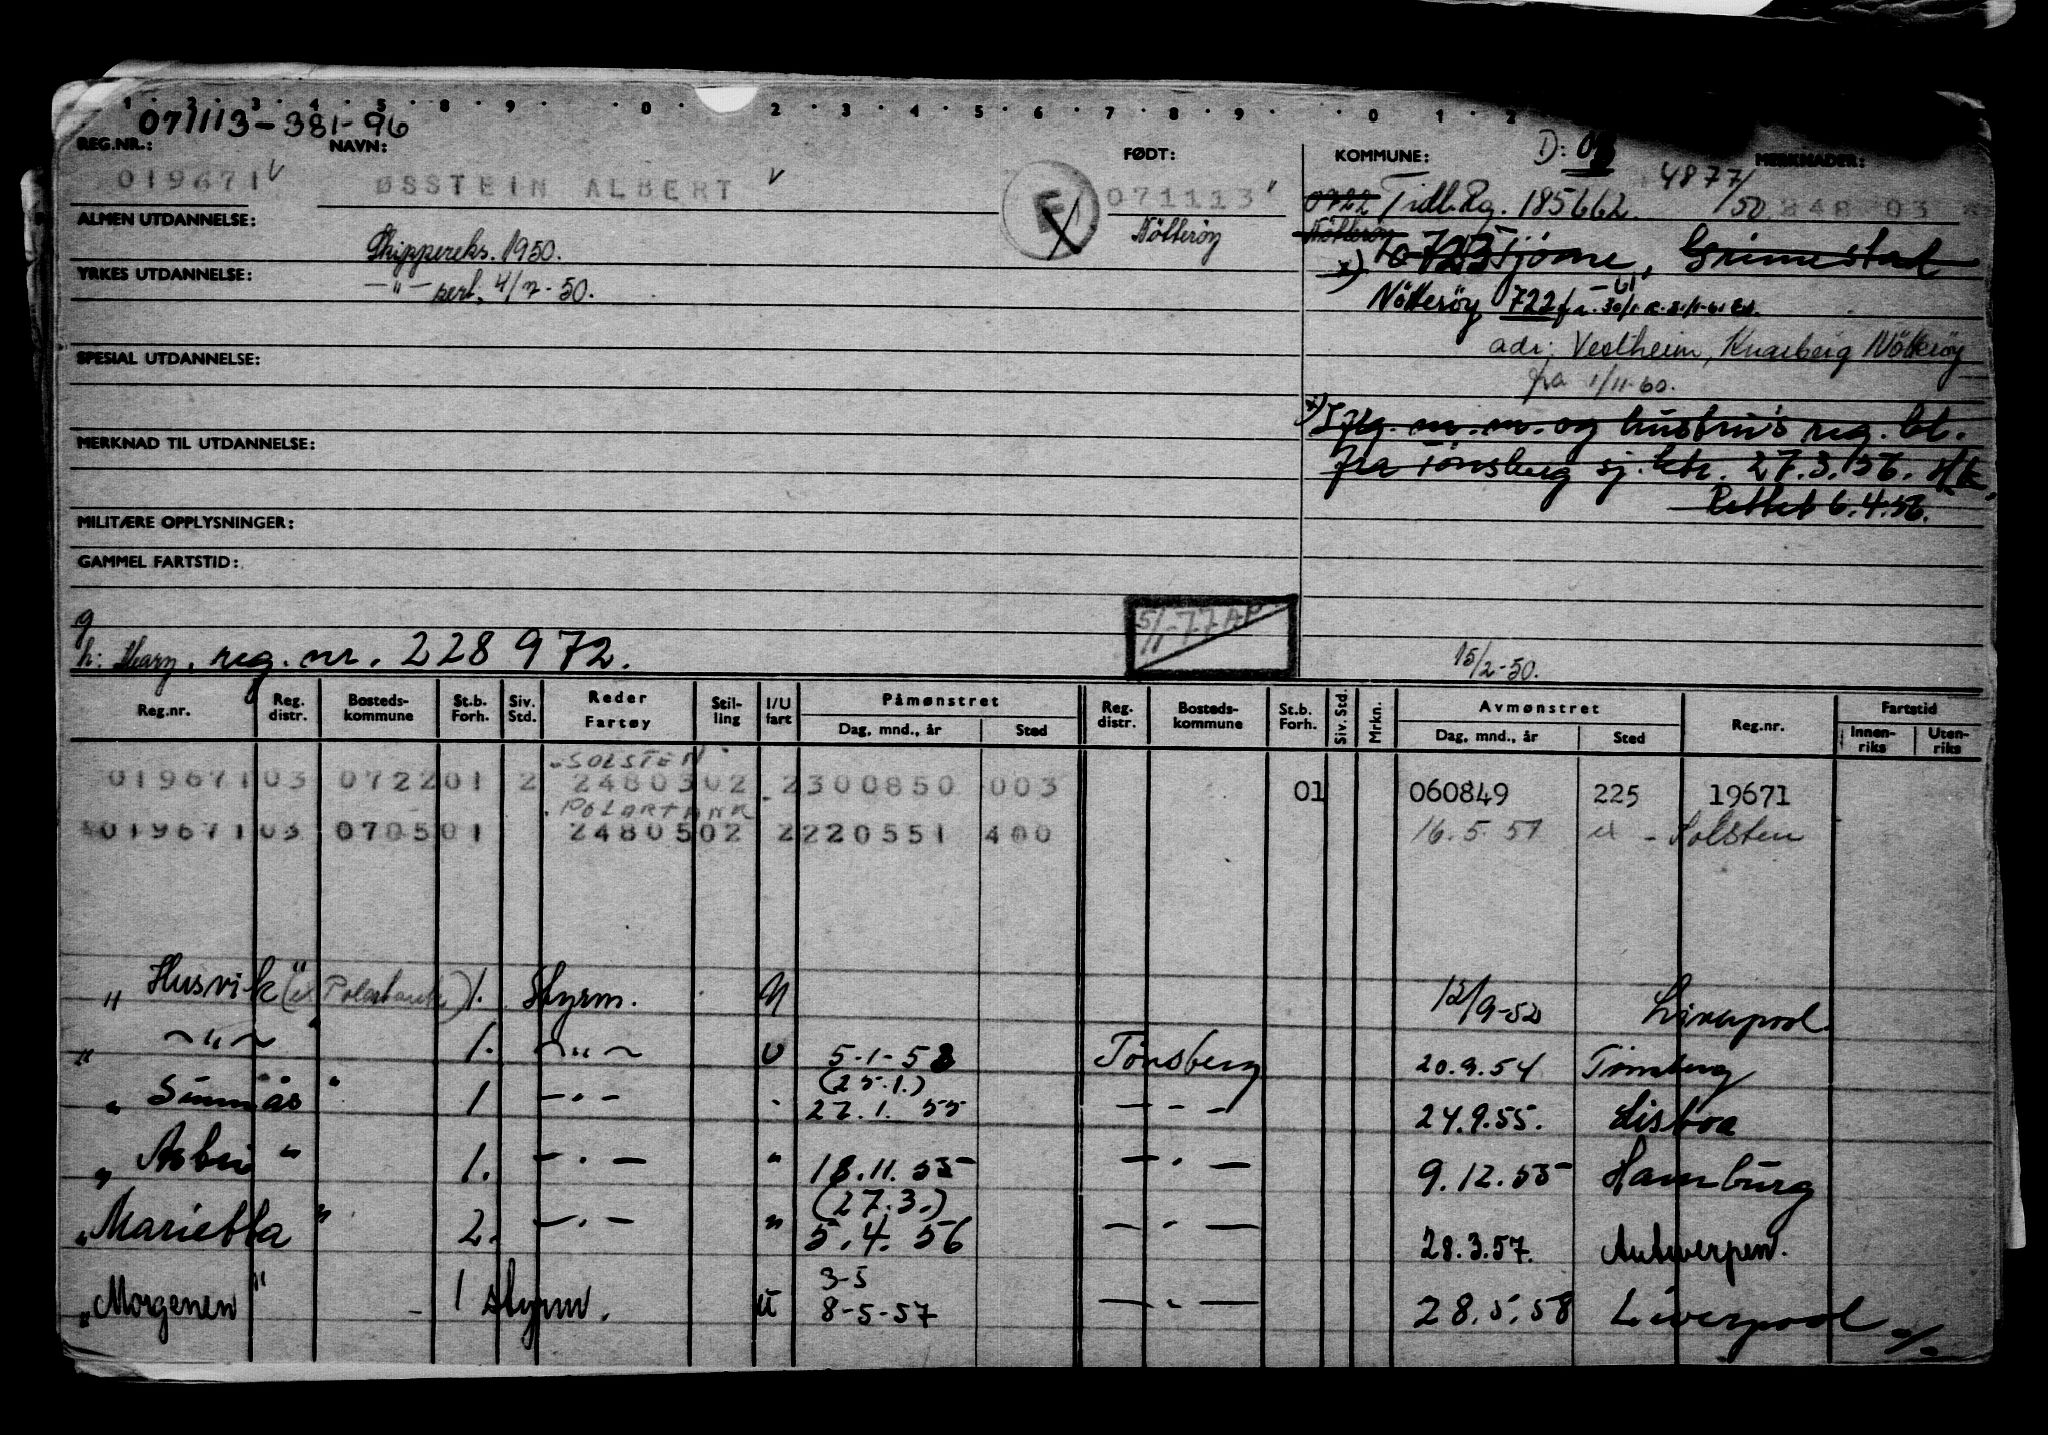 1 · 2 · 3 · 4 · 5 · 8 · 9 · · 0 · 2 · 3 · 4 · 5 · 6 · 7 · 8 · 9 · · 0 · 1 · 2
071113-381-96
REG.NR.: NAVN: FØDT: KOMMUNE: D: MERKNADER:
019671 ØSSTEIN ALBERT F 071113 0722 Tidl. Rg. 185662 4877/50 848 03
ALMEN UTDANNELSE: Skippereks. 1950. Nötteröy Nötteröy
0723 Tjöme, Grimestad
YRKES UTDANNELSE: —"— sert. 4/7-50.
Nötterøy 722
adr: Vestheim, Knarberg Nötterøy
SPESIAL UTDANNELSE:
fra 1/11-60.
x) Iflg. m.m. og hustru's reg. bl.
MERKNAD TIL UTDANNELSE:
fra Tønsberg sj. ktr. 27.3.56.
Rettet 6.4.56.
MILITÆRE OPPLYSNINGER:
GAMMEL FARTSTID:
g
5/11-77 AP
h: Mary, reg. nr. 228972.
15/2-50.
Reg.nr. Reg. distr. Bosteds-kommune St.b. Forh. Siv. Std. Reder Fartøy Stil-ling I/U fart Påmønstret Dag, mnd., år Sted Reg. distr. Bosteds-kommune St.b. Forh. Siv. Std. Mrkn. Avmønstret Dag, mnd., år Sted Reg.nr. Fartstid Innen-riks Uten-riks
"SOLSTEN"
019671 03 0722 01 2 24803 02 2 300850 003 01 060849 225 19671
POLARTANK
019671 03 0705 01 24805 02 2 220551 400 16.5.51 ex - Solsten
"Husvik" (ex Polartank) 1. Styrm. U 12/9-52 Liverpool
" ~"~ " 1. ~"~ U 5-1-53 Tønsberg 20.9.54 Tønsberg
(25.1.)
" Sunnås " 1 —"— " 27.1.55 —"— 24.9.55. Lisboa
" " 1. —"— " 18.11.55 —"— 9.12.55 Hamburg
(27.3.)
"Marietta" 2. —"— " 5.4.56 —"— 28.3.57. Antwerpen.
3-5
"Morgenen" 1 styrm. U 8-5-57 —"— 28.5.58 Liverpool ./.